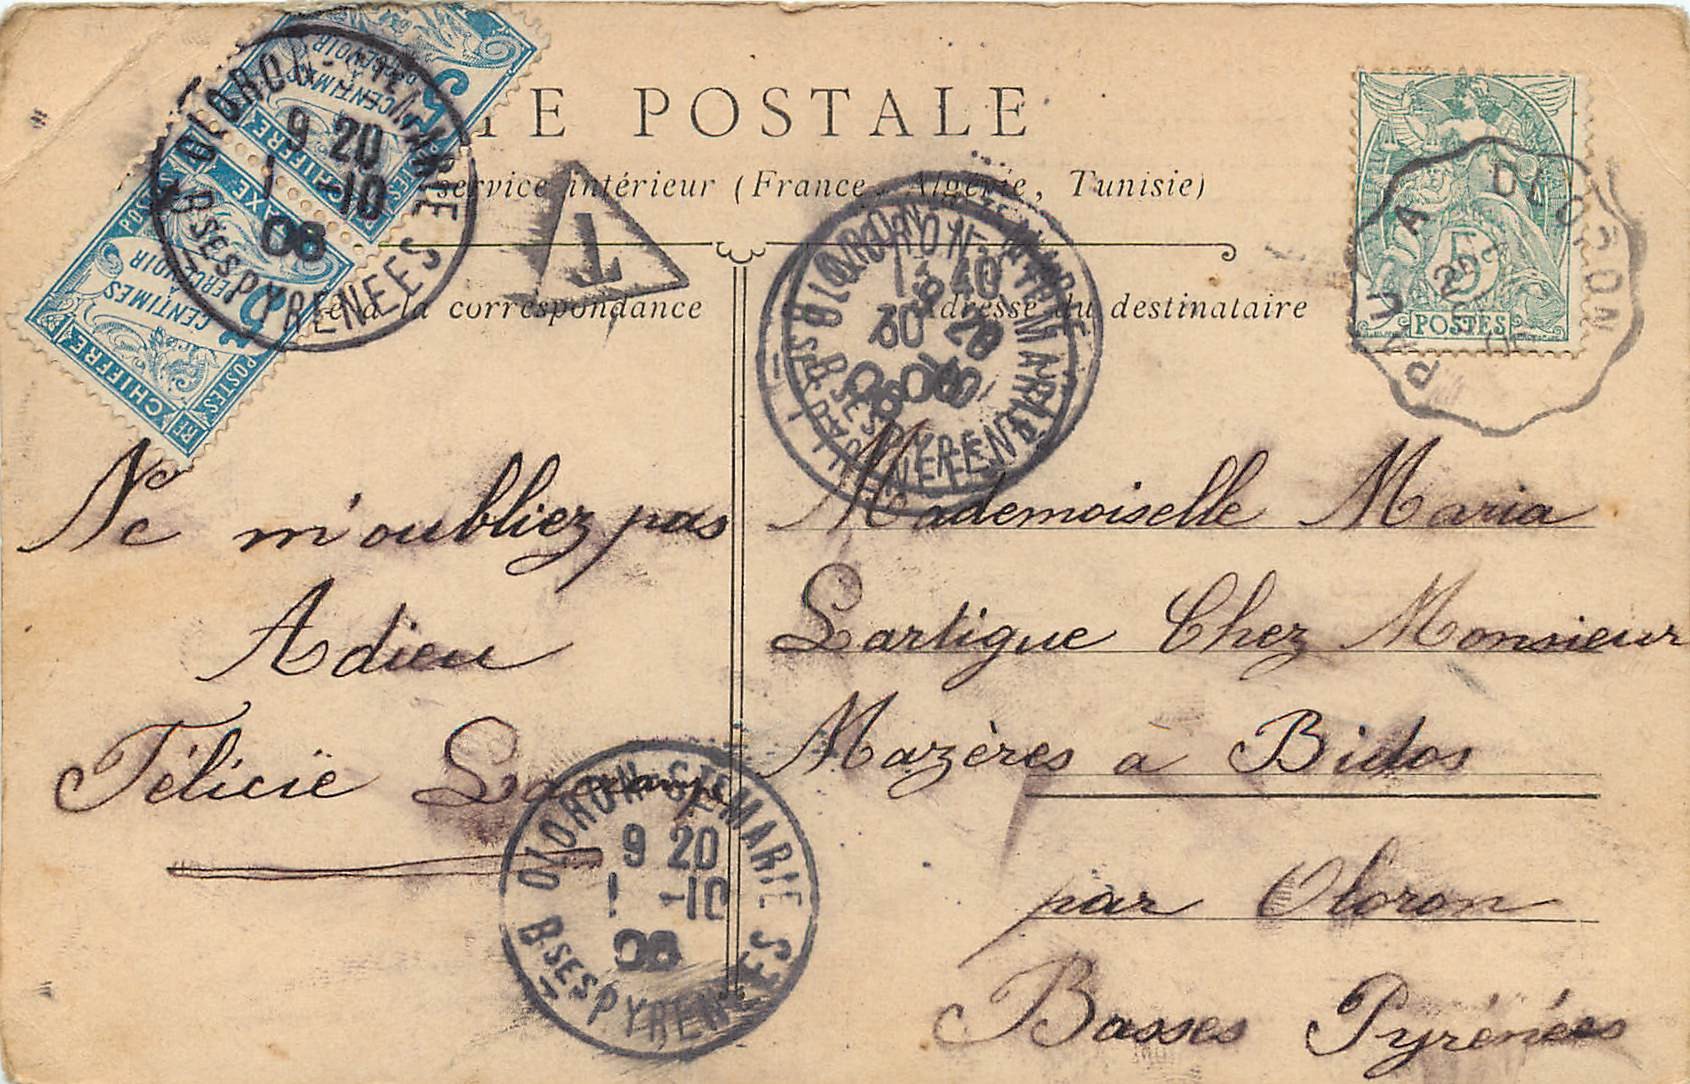 TE POSTALE
service intérieur (France, Algérie, Tunisie)
à la correspondance
Adresse du destinataire
CHIFFRE TAXE
5
CENTIMES
À PERCEVOIR
POSTES
RF
CHIFFRE TAXE
5
CENTIMES
À PERCEVOIR
POSTES
RF
OLORON-STE MARIE
9 20
1 -10
06
BSES PYRENEES
T
OLORON-STE MARIE
40
30
20
06
BSES PYRENEES
5
POSTES
PAU A OLORON
Ne m'oubliez pas
Adieu
Félicië
Mademoiselle Maria
Lartigue Chez Monsieur
Mazères à Bidos
par Oloron
Basses Pyrénées
OLORON-STE MARIE
9 20
1 -10
06
BSES PYRENEES